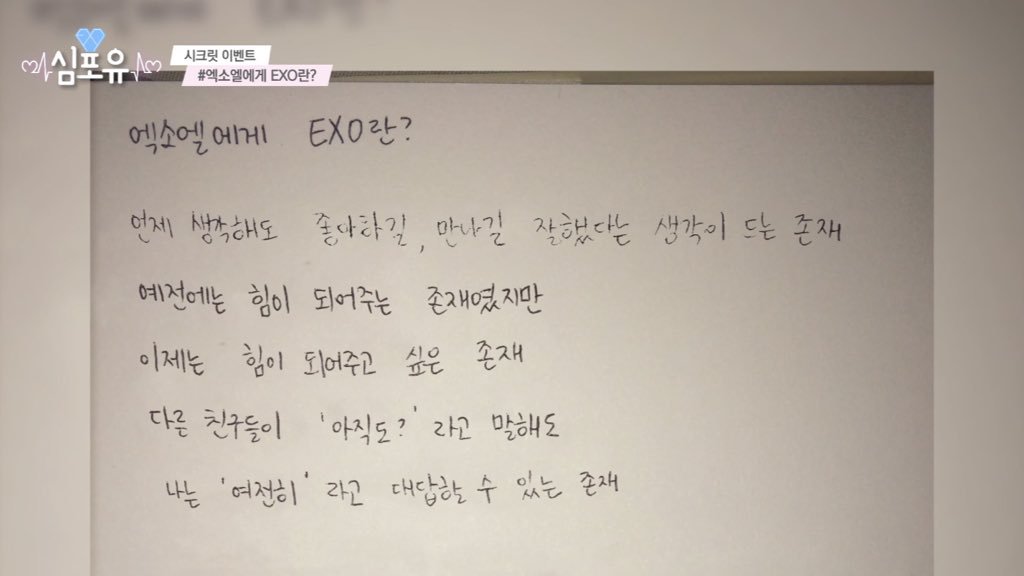 심포유
시크릿 이벤트
#엑소엘에게 EXO란?
엑소엘에게 EXO란?
언제 생각해도 좋아하길, 만나길 잘했다는 생각이 드는 존재
예전에는 힘이 되어주는 존재였지만
이제는 힘이 되어주고 싶은 존재
다른 친구들이 '아직도?' 라고 말해도
나는 '여전히' 라고 대답할 수 있는 존재